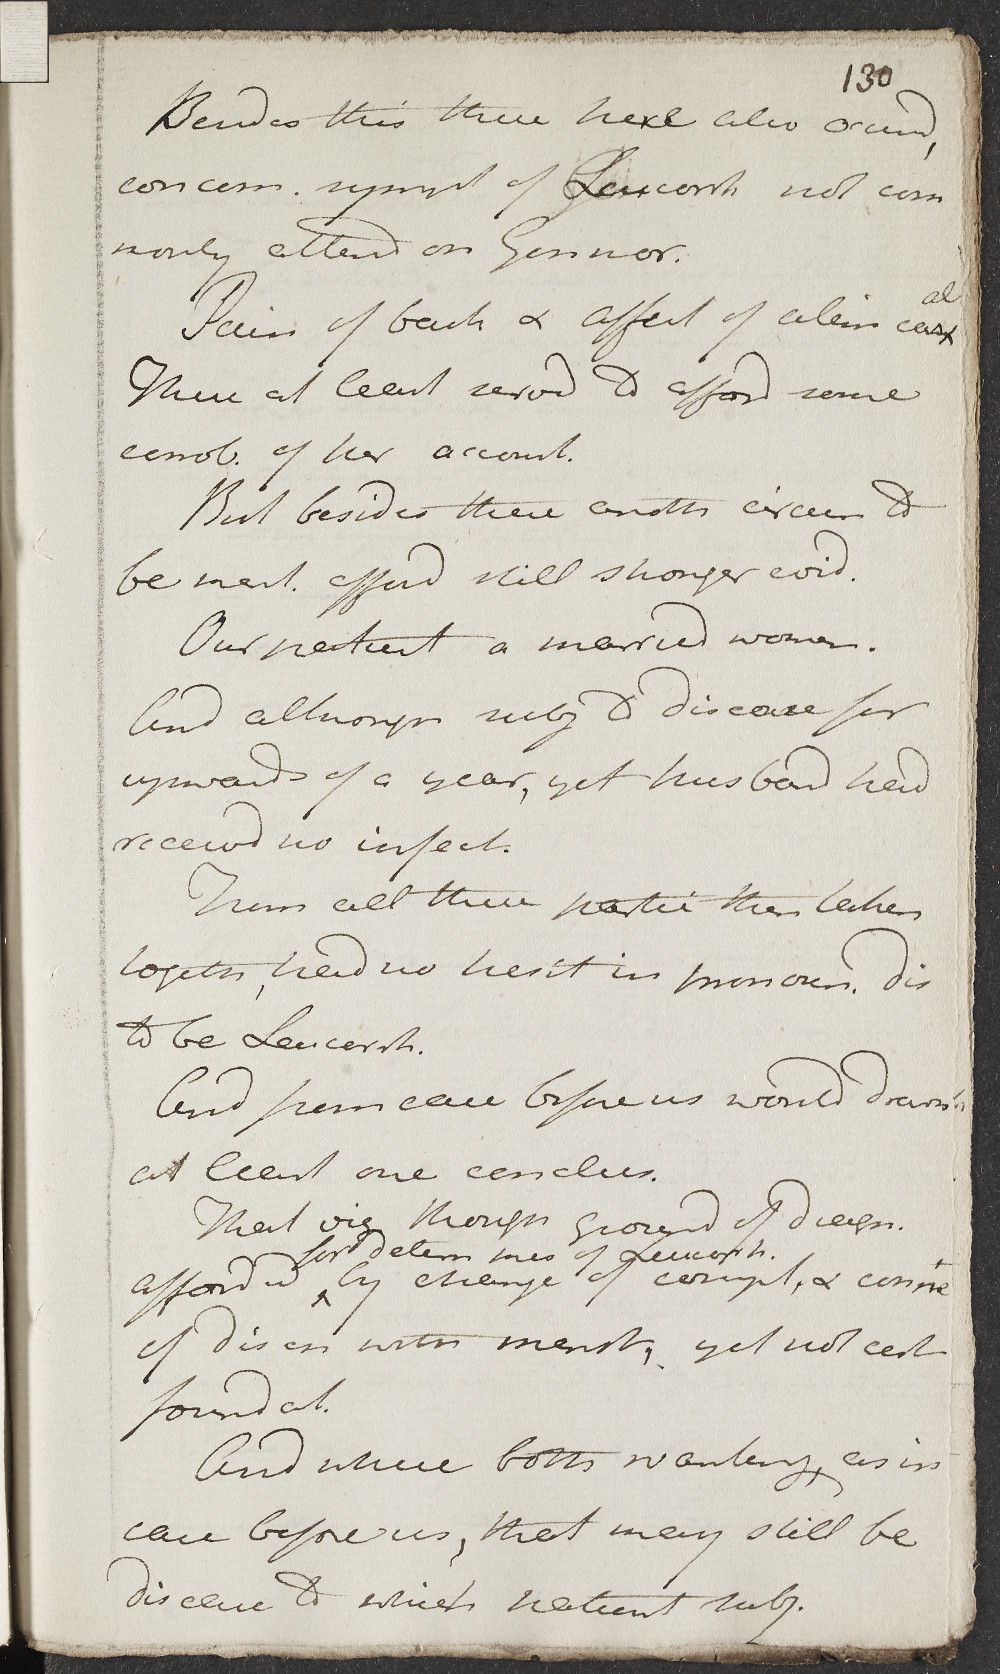 130
Besides this there here also occurrd,
concom. sympt of Leucorrh not com
monly attend on Gonnor.
Pain of back & affect of alim canal
These at least servd to afford some
corrob. of her account.
But besides these anoth circum to
be ment. afford still stronger evid.
Our patient a married woman.
And although subj to disease for
upwards of a year, yet husband had
receivd no infect.
From all these partic then taken
togeth, had no hesit in pronoun. dis
to be Leucorrh.
And from case before us would draw
at least one conclus.
That viz though ground of diagn.
for determ of Leucorrh.
afforded by change of compl, &
of dis with menst, yet not cert
foundat.
And where both wanting, as in
case before us, that may still be
disease to which patient subj.